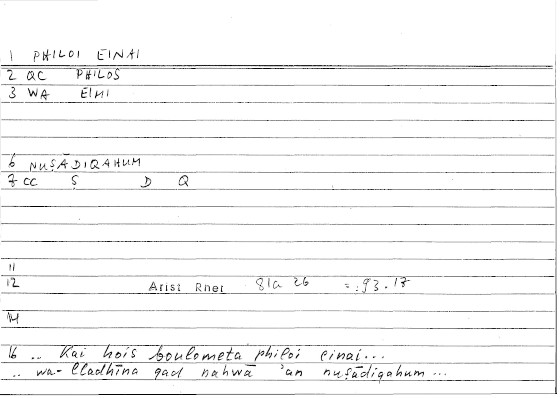 1 PHILOI EINAI
2 QC PHILOS
3 WA EIMI
6 NUṢĀDIQAHUM
7 CC Ṣ D Q
11
12 Arist Rhet 81a 26 = :93.17
14
16 .. Kai hois boulometa philoi einai...
.. wa-lladhīna qad nahwā 'an nuṣādiqahum ...